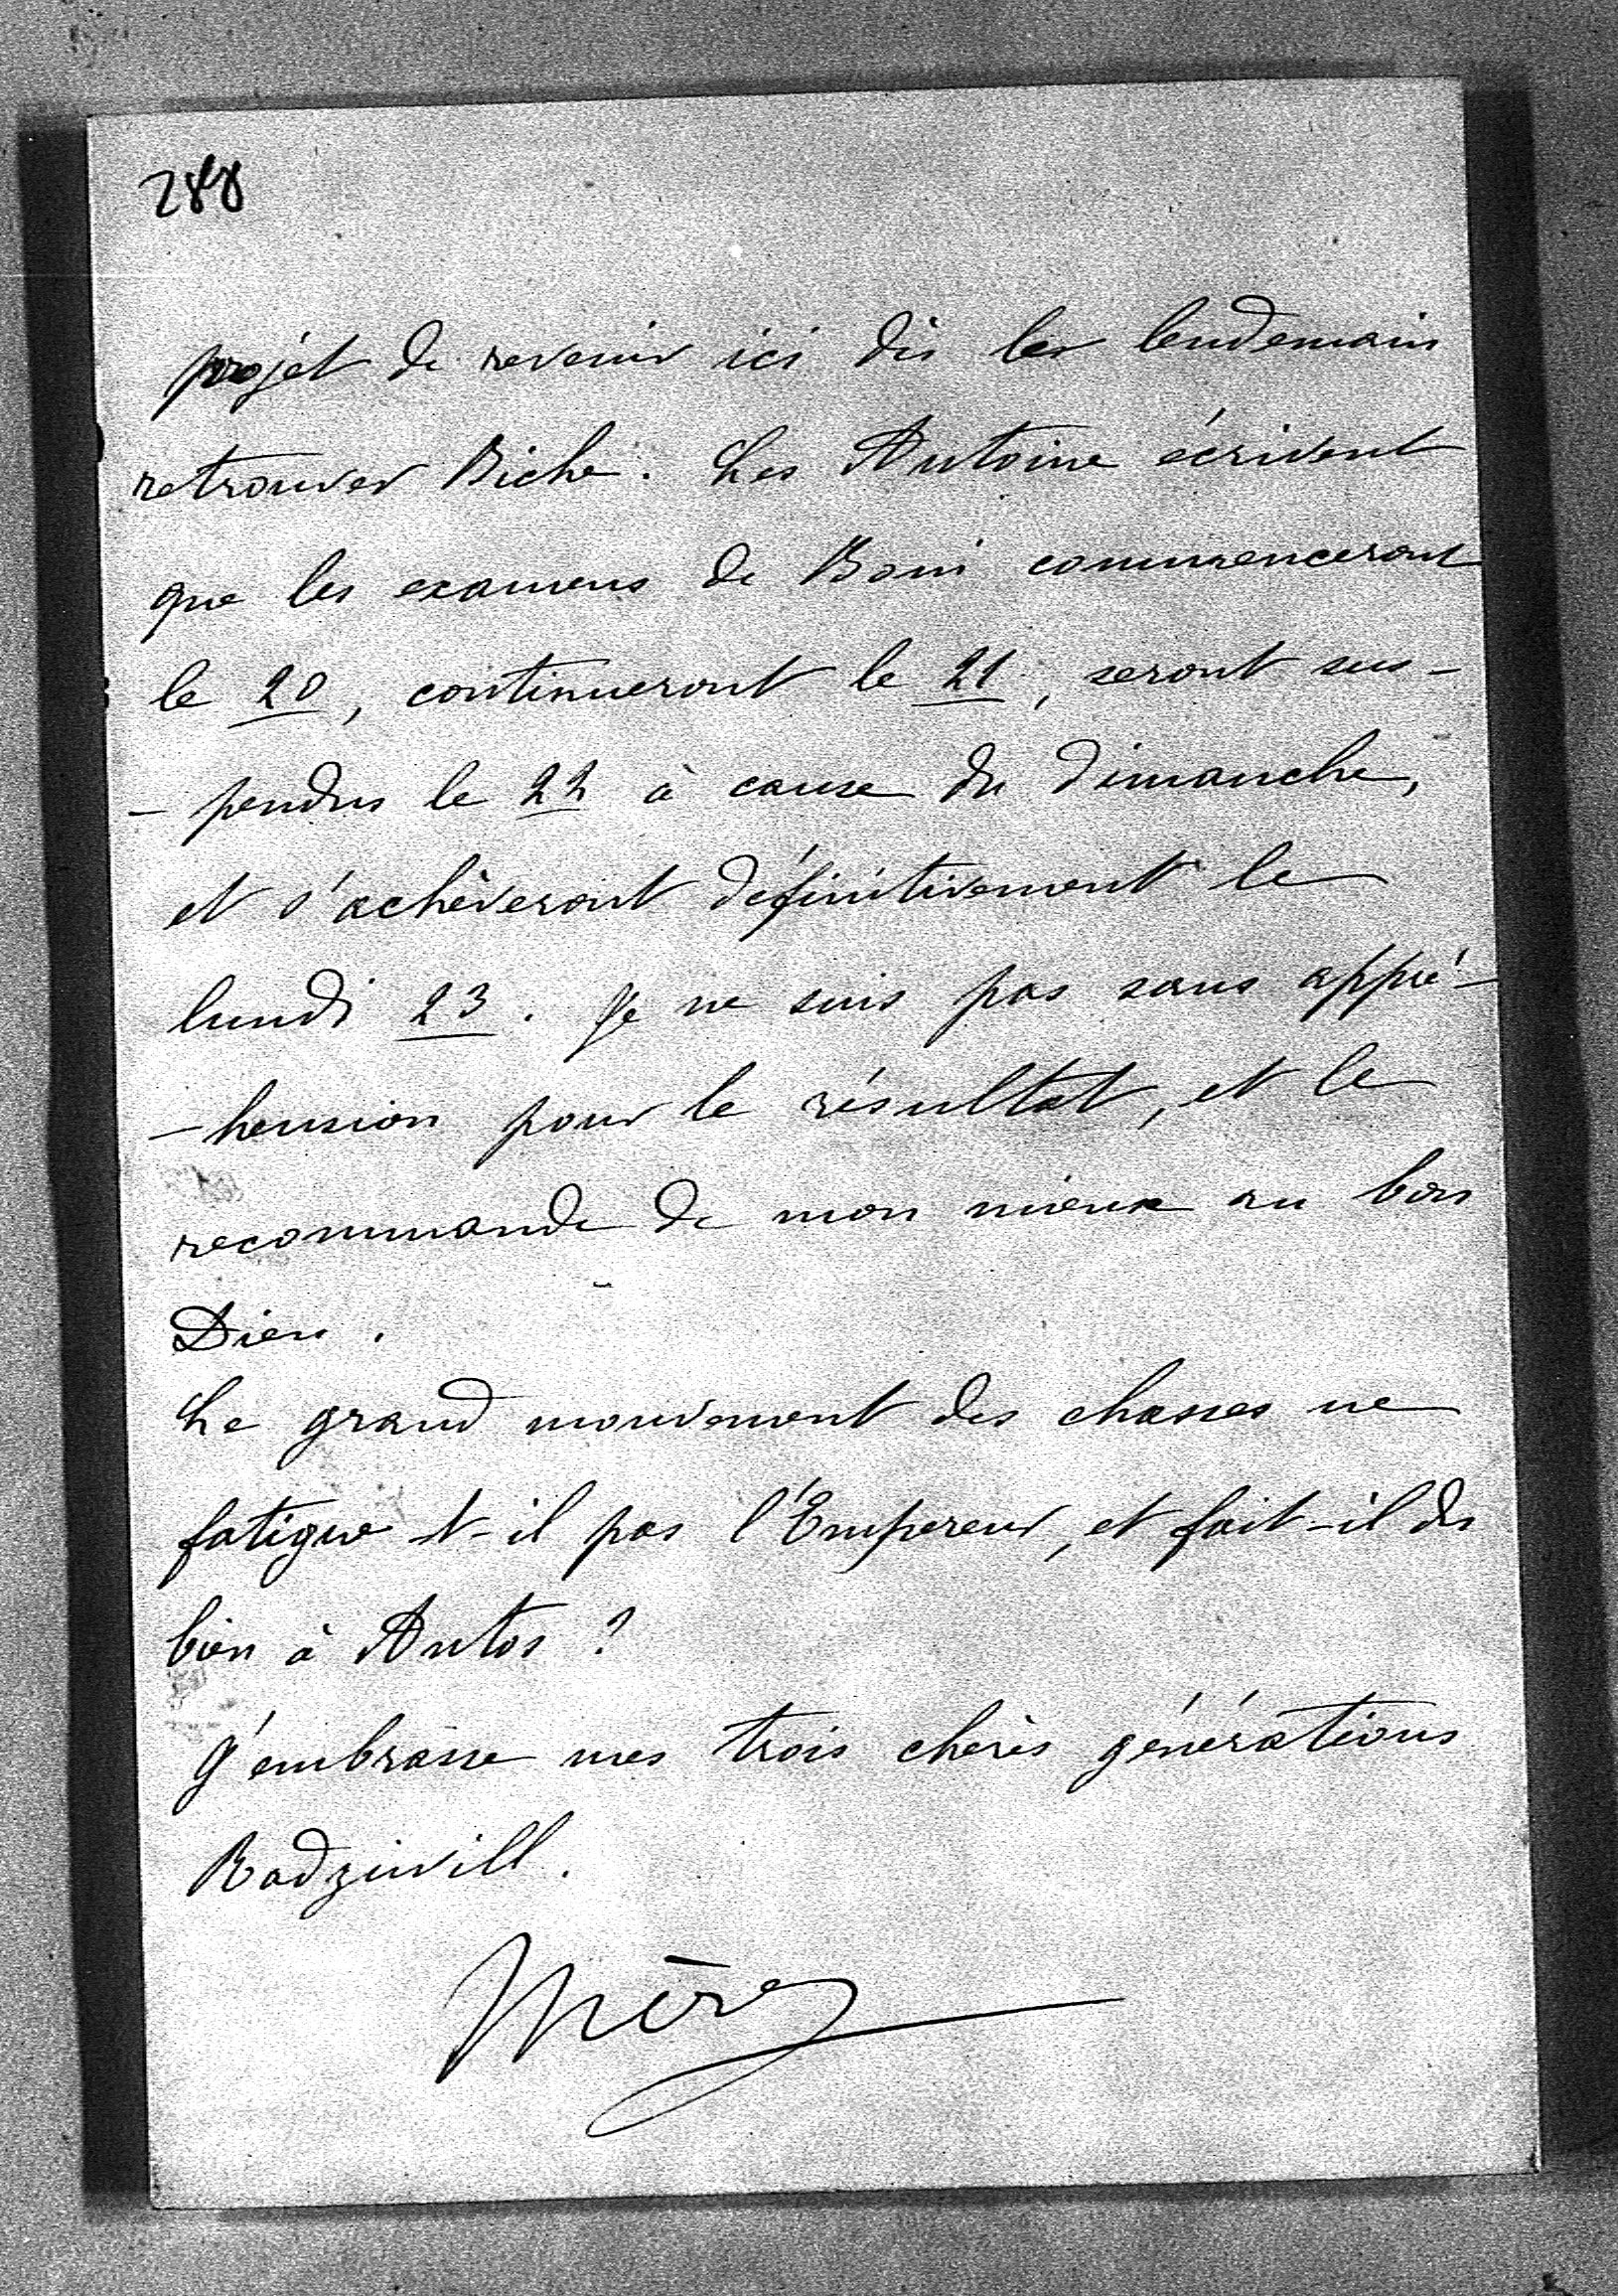 288
projèt de revenir ici dès le lendemain
retrouver Biche. Les Antoine écrivent
que les examens de Boni commenceront
le 20, continueront le 21, seront sus-
-pendus le 22 à cause du dimanche,
et s'achèveront définitivement le
lundi 23. Je ne suis pas sans appré-
-hension pour le résultat, et le
recommande de mon mieux au bon
Dieu.
Le grand mouvement des chasses ne
fatigue t-il pas l'Empereur, et fait-il du
bien à Antos?
J'embrasse mes trois chères générations
Radziwill.
Mère